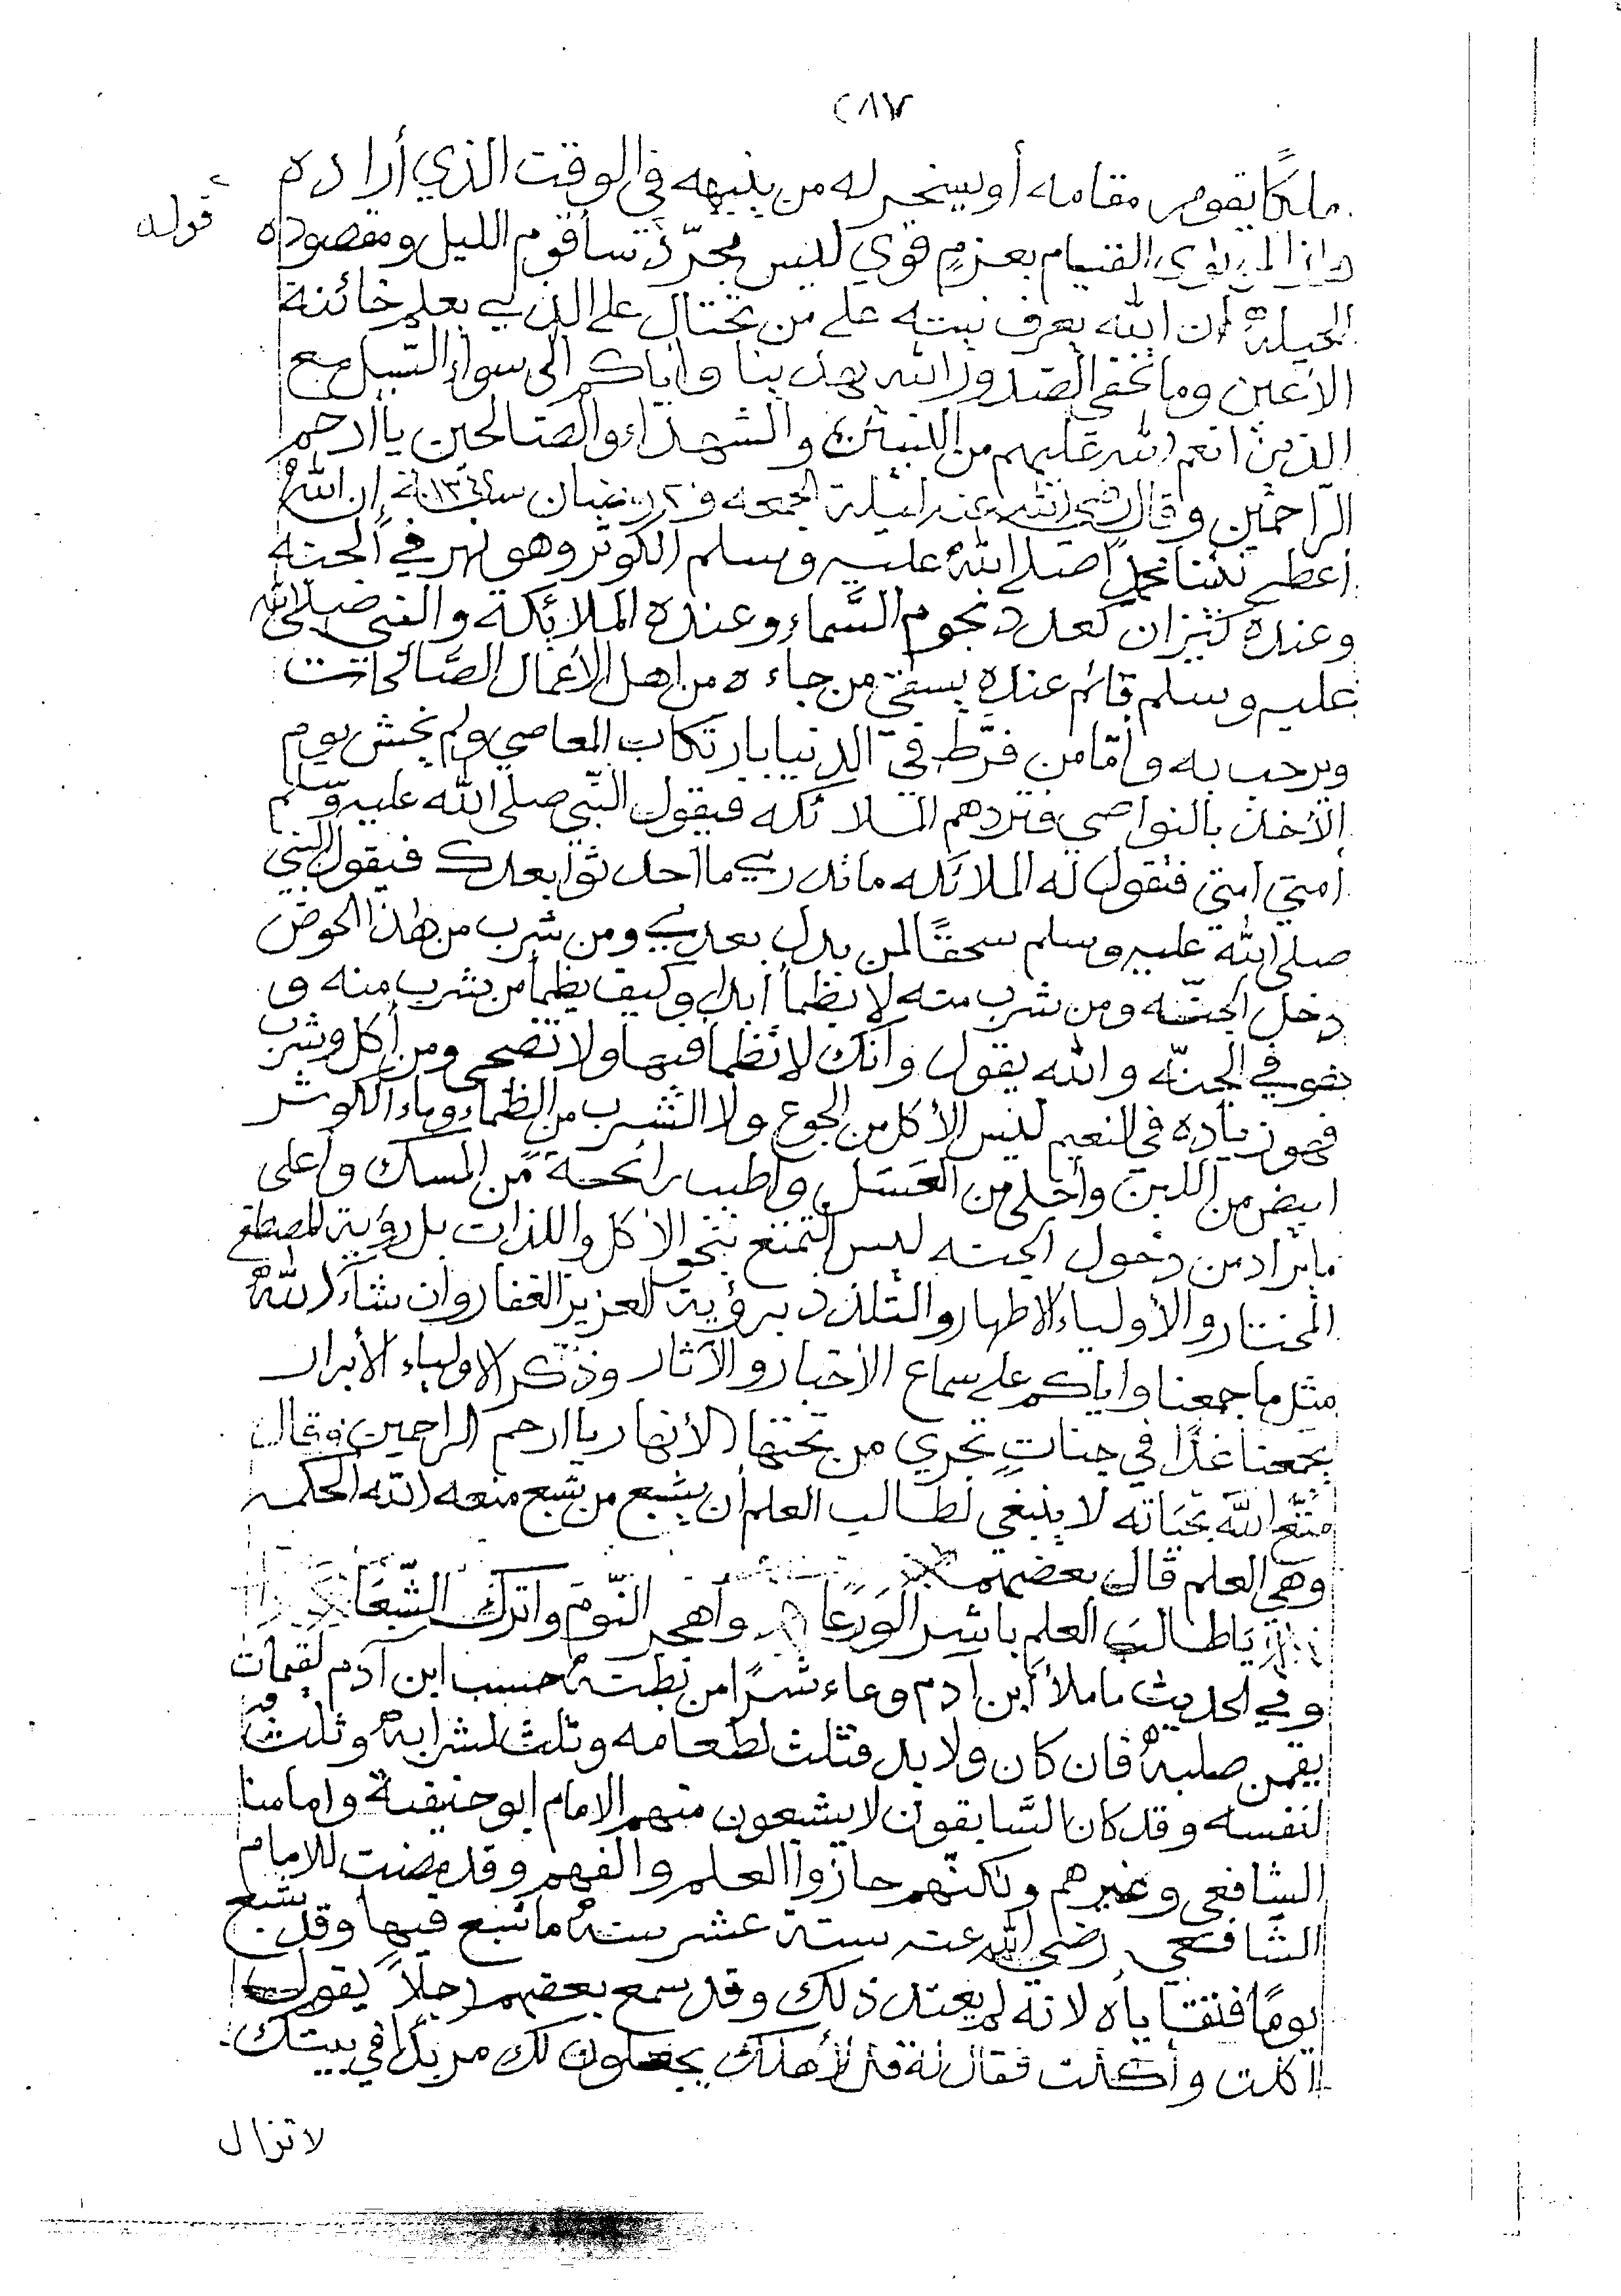 ٢٨٧
ملكًا يقوم مقامه أو يسخر له من ينبهه في الوقت الذي أراده
قوله
وإذا القيام بعزمٍ قوي ليس مجرّد سأقوم الليل ومقصوده
الحيلة أن الله يعرف نيته على من تحتال على الذي يعلم خائنة
الأعين وما تخفي الصدور الله يهدينا وإياكم إلى سواء السبيل مع
الذين أنعم الله عليهم من النبيّين والشهداء والصالحين يا أرحم
الراحمين وقال رضي الله عنه ليلة الجمعه رمضان سنة إن اللهُ
أعطى نبينا محمدًا صلى اللهُ عليه وسلم الكوثر وهو نهر في الجنه
وعنده كيزان كعدد نجوم السَّماء وعنده الملائكة والنبي صلى الله
عليه وسلم قائم عنده يسقي من جاءه من اهل الأعمال الصَّالحات
ويرحب به وأمّا من فرَّط في الدنيا بارتكاب المعاصي ولم يخش يوم
الأخذ بالنواصي فتردهم الملائكه فيقول النّبي صلى الله عليه وسلم
أمتي امتي فتقول له الملائكه ما تدري ما أحدثوا بعدك فيقول النبي
صلى الله عليه وسلم سحقًا لمن بدل بعدي ومن شرب من هذا الحوض
دخل الجنّه ومن شرب منه لا يظمأ أبدا وكيف يظمأ من يشرب منه و
هو في الجنّه والله يقول وأنك لا تظمأ فيها ولا تضحى ومن أكل وشرب
فهو زياده في النعيم ليس الأكل من الجوع ولا الشرب من الظماء وماء الكوثر
ابيض من اللبن وأحلى من العَسَل وأطيب رائحة من المسك وأعلى
ما يراد من دخول الجنه ليس التمتع بنحو الأكل واللذات بل رؤية المصطفى
المختار والأولياء الاطهار والتلذذ برؤية العزيز الغفار وان شآء اللهُ
مثل ما جمعنا واياكم على سماع الأخبار والآثار وذكر الاولياء الأبرار
يجمعنا غدًا في جناتٍ تجري من تحتها الأنهار يا ارحم الراحمين وقال
متَّع اللهَ بحَياته لا ينبغي لطالب العلم أن يشبع من شبع منعه الله الحكمه
وهي العلم قال بعضهم
يَا طالبَ العلم باشر الوَرَعا واهجر النّومَ واترك الشّبَعَا
وفي الحديث ما ملأ ابن آدم وعاء شرًا من بطنه حسب ابن آدم لقيمات
يقمن صلبهُ فان كان ولا بد فثلث لطعامه وثلث لشرابهُ وثلثٌ
لنفسه وقد كان السَّابقون لا يشبعون منهم الامام ابو حنيفة وإمامنا
الشافعي وغيرهم ولكنّهم حازوا العلم والفهم وقد مضت للامام
الشَّافعي رضي الله عنه ستة عشر سنهْ ما شبع فيها وقد شبع
يومًا فتقيأه لانهُ لم يعتد ذلك وقد سمع بعضهم رجلاً يقول
أكلت وأكلت فقال له قل لأهلك يجعلون لك مربدًا في بيتك
لا تزال